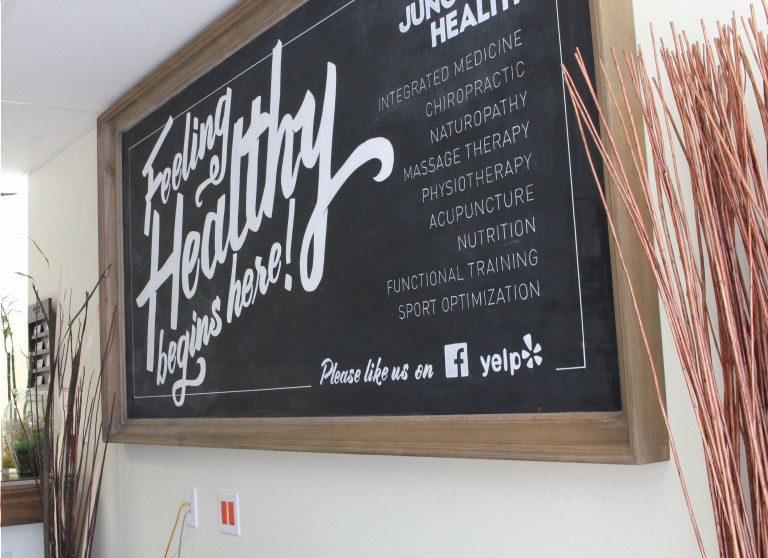 Feeling
Healthy
begins here!
HEALTH
INTEGRATED MEDICINE
CHIROPRACTIC
NATUROPATHY
MASSAGE THERAPY
PHYSIOTHERAPY
ACUPUNCTURE
NUTRITION
FUNCTIONAL TRAINING
SPORT OPTIMIZATION
Please like us on f yelp